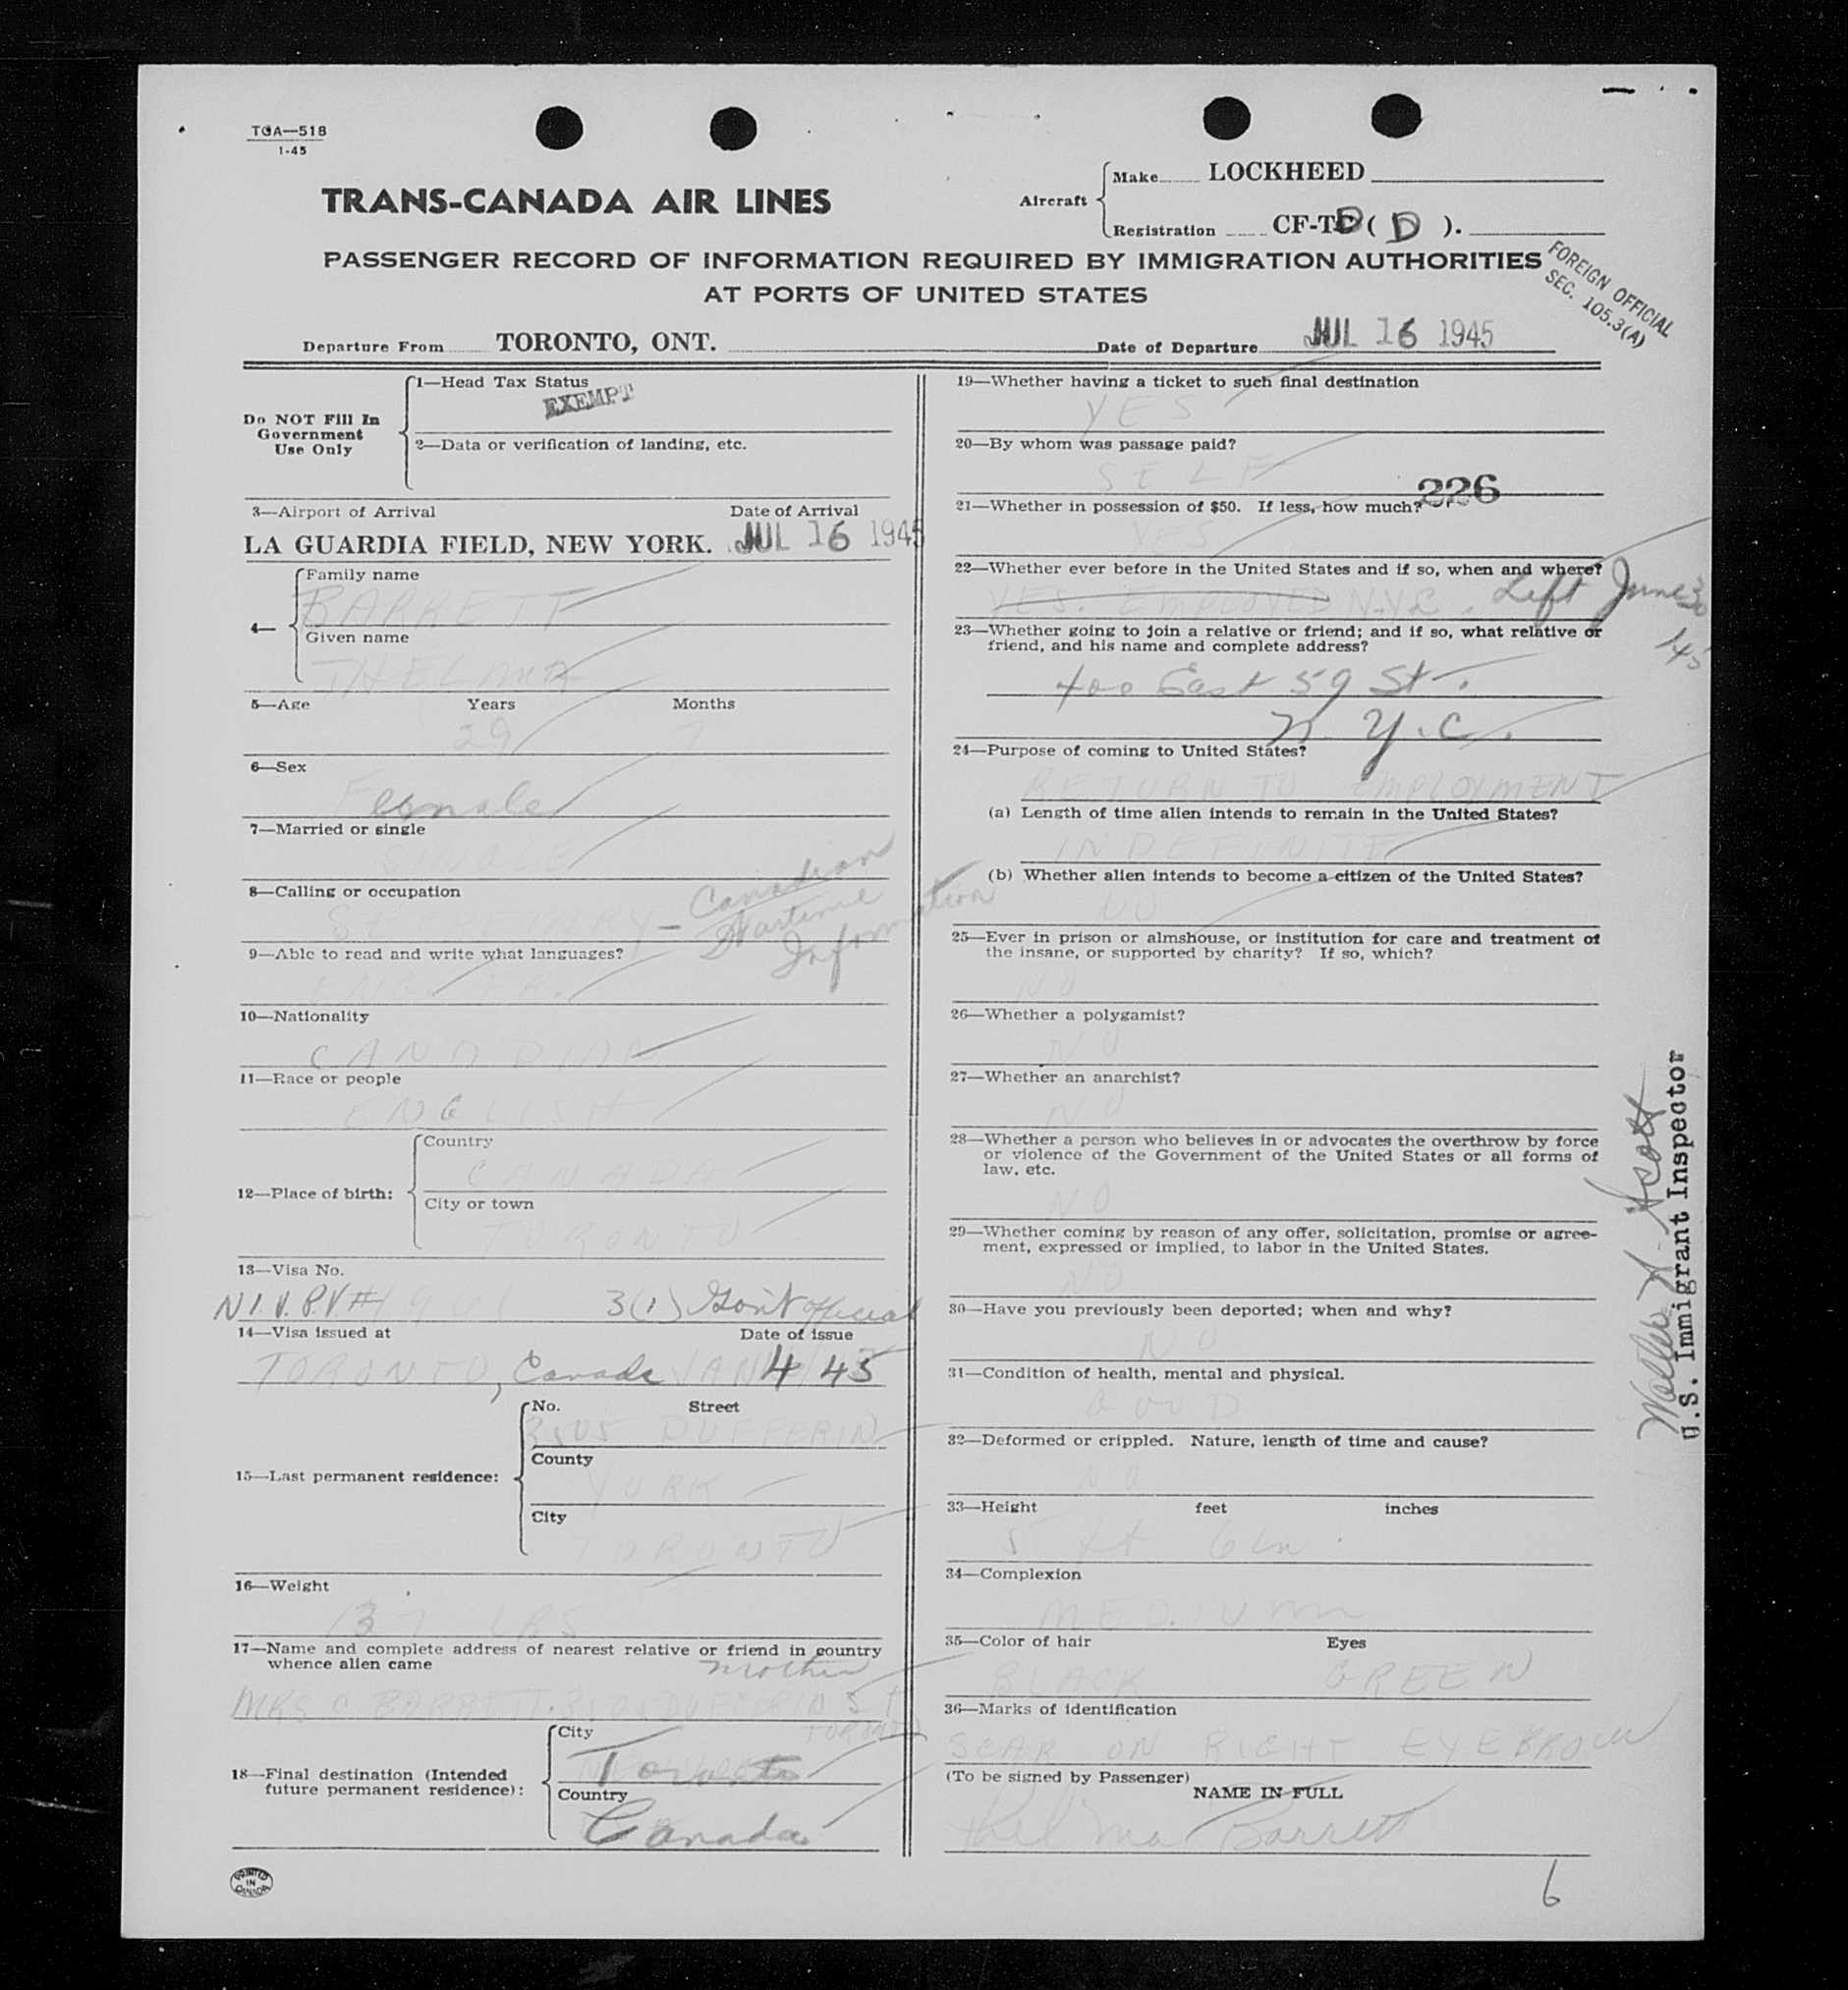 TCA—518
1-45
TRANS-CANADA AIR LINES
Aircraft
Make LOCKHEED
Registration CF-TC ( D ).
PASSENGER RECORD OF INFORMATION REQUIRED BY IMMIGRATION AUTHORITIES
AT PORTS OF UNITED STATES
FOREIGN OFFICIAL
SEC. 105.3(A)
Departure From TORONTO, ONT. Date of Departure JUL 16 1945
Do NOT Fill In
Government
Use Only
1—Head Tax Status
EXEMPT
2—Data or verification of landing, etc.
3—Airport of Arrival Date of Arrival
LA GUARDIA FIELD, NEW YORK. JUL 16 1945
4—
Family name
BARRETT
Given name
THELMA
5—Age Years Months
29 7
6—Sex
Female
7—Married or single
SINGLE
8—Calling or occupation
SECRETARY — Canadian
Wartime
Information
9—Able to read and write what languages?
10—Nationality
CANADIAN
11—Race or people
ENGLISH
12—Place of birth:
Country
CANADA
City or town
TORONTO
13—Visa No.
N.I.V. P.V# 3(1) Gov't official
14—Visa issued at Date of issue
TORONTO, Canada JAN 4 45
15—Last permanent residence:
No. Street
DUFFERIN
County
YORK
City
TORONTO
16—Weight
137 LBS
17—Name and complete address of nearest relative or friend in country
whence alien came
mother
MRS C. BARRETT. DUFFERIN ST
TORONTO
18—Final destination (Intended
future permanent residence):
City
Toronto
Country
Canada
PRINTED
IN
CANADA
19—Whether having a ticket to such final destination
YES
20—By whom was passage paid?
SELF
226
21—Whether in possession of $50. If less, how much?
YES
22—Whether ever before in the United States and if so, when and where?
YES. EMPLOYED N.Y.C. Left June 30
'45
23—Whether going to join a relative or friend; and if so, what relative or
friend, and his name and complete address?
400 East 59 St.
N.Y.C.
24—Purpose of coming to United States?
RETURN TO EMPLOYMENT
(a) Length of time alien intends to remain in the United States?
INDEFINITE
(b) Whether alien intends to become a citizen of the United States?
NO
25—Ever in prison or almshouse, or institution for care and treatment of
the insane, or supported by charity? If so, which?
NO
26—Whether a polygamist?
NO
27—Whether an anarchist?
NO
28—Whether a person who believes in or advocates the overthrow by force
or violence of the Government of the United States or all forms of
law, etc.
NO
29—Whether coming by reason of any offer, solicitation, promise or agree-
ment, expressed or implied, to labor in the United States.
NO
30—Have you previously been deported; when and why?
NO
31—Condition of health, mental and physical.
GOOD
32—Deformed or crippled. Nature, length of time and cause?
NO
33—Height feet inches
5 ft 6 in.
34—Complexion
MEDIUM
35—Color of hair Eyes
BLACK GREEN
36—Marks of identification
SCAR ON RIGHT EYEBROW
(To be signed by Passenger)
NAME IN FULL
Thelma Barrett
6
Scott
U.S. Immigrant Inspector